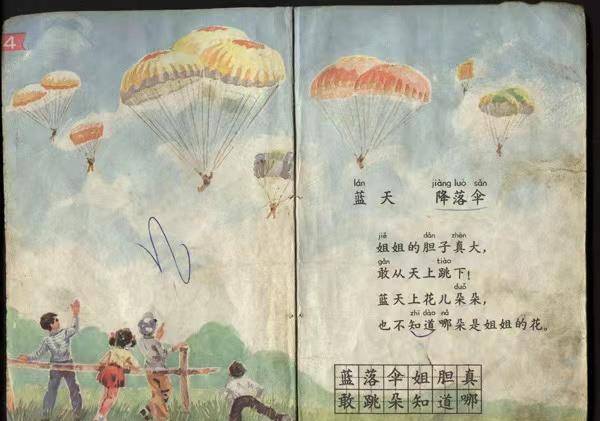 4
lán jiàng luò sǎn
蓝 天 降落伞
jiě dǎn zhēn
姐姐的胆子真大，
gǎn tiào
敢从天上跳下！
duǒ
蓝天上花儿朵朵，
zhī dào nǎ
也不知道哪朵是姐姐的花。
蓝落伞姐胆真
敢跳朵知道哪